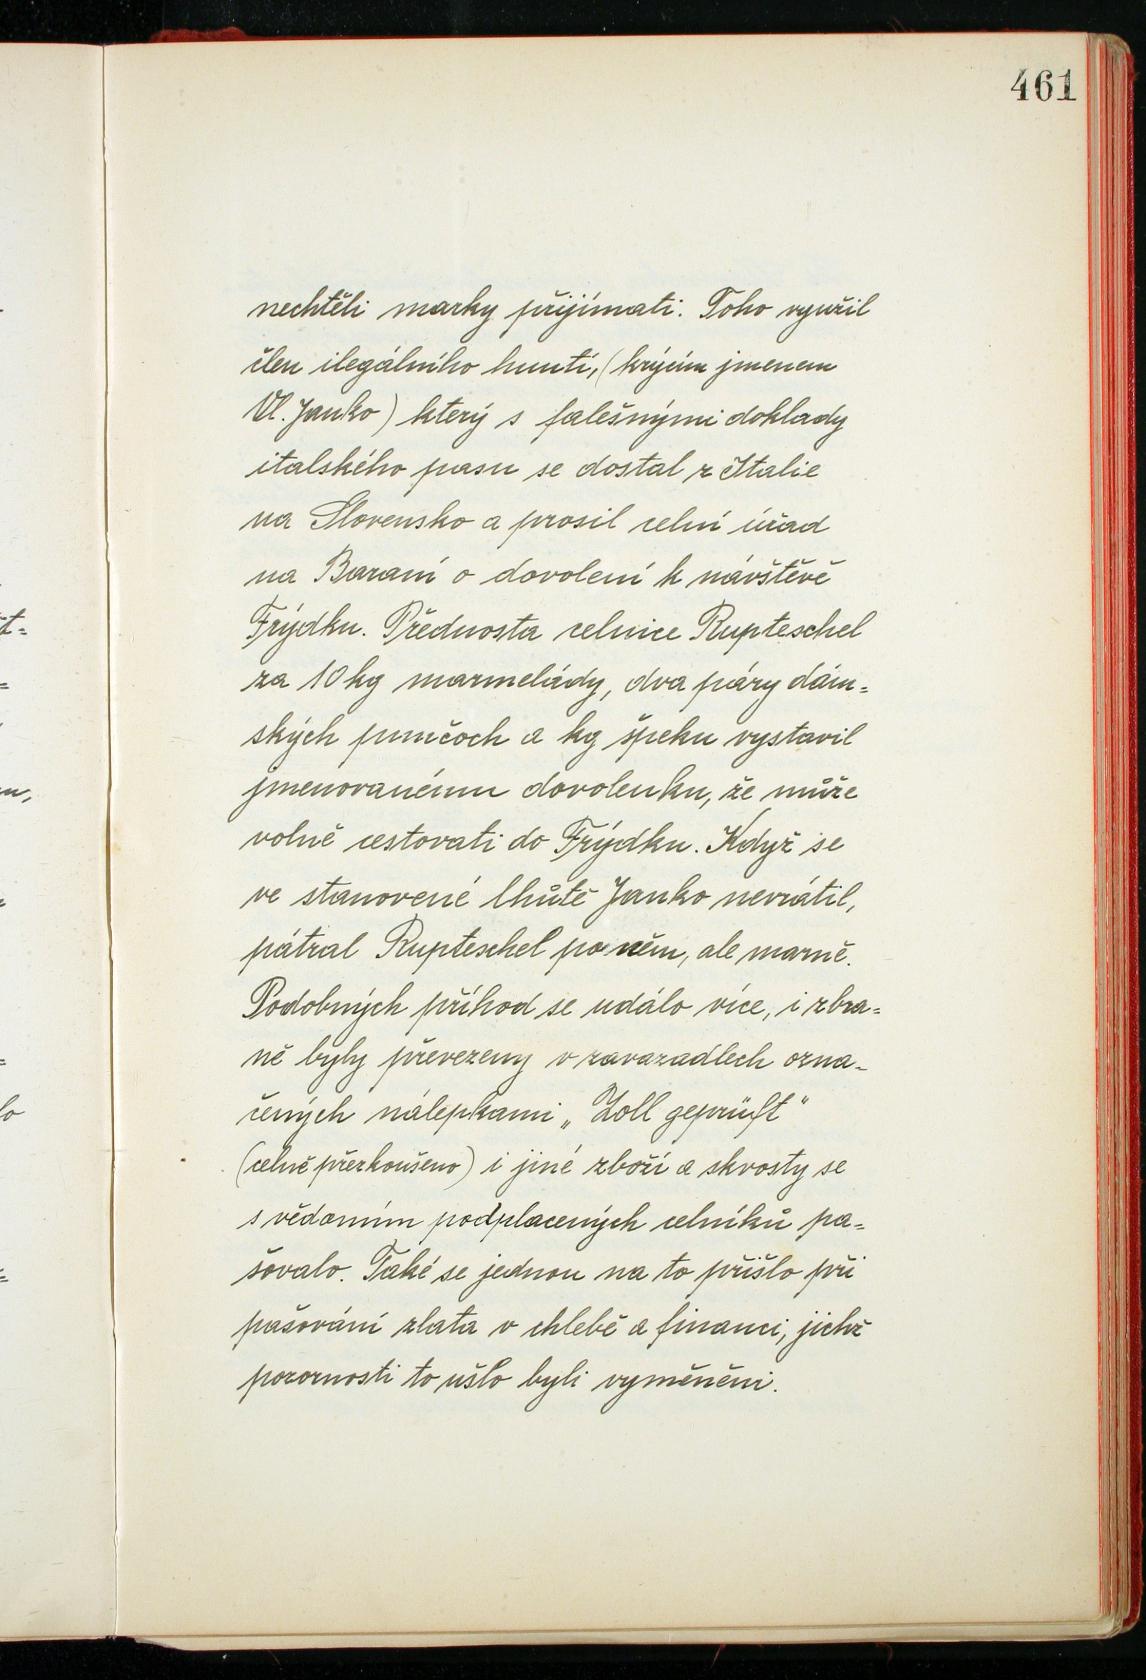 461
nechtěli marky přijímati. Toho využil
člen ilegálního hnutí, (krýcím jmenem
Vl. Janko) který s falešnými doklady
italského pasu se dostal z Italie
na Slovensko a prosil celní úřad
na Baraní o dovolení k návštěvě
Frýdku. Přednosta celnice Rupteschel
za 10 kg marmelády, dva páry dám=
ských punčoch a kg špeku vystavil
jmenovanému dovolenku, že může
volně cestovati do Frýdku. Když se
ve stanovené lhůtě Janko nevrátil,
pátral Rupteschel po něm, ale marně.
Podobných příhod se událo více, i zbra=
ně byly převezeny v zavazadlech ozna=
čených nálepkami „Zoll geprüft"
(celně přezkoušeno) i jiné zboží a skvosty se
s vědomím podplacených celníků pa=
šovalo. Také se jednou na to přišlo při
pašování zlata v chlebě a financi, jichž
pozornosti to ušlo byli vyměněni.